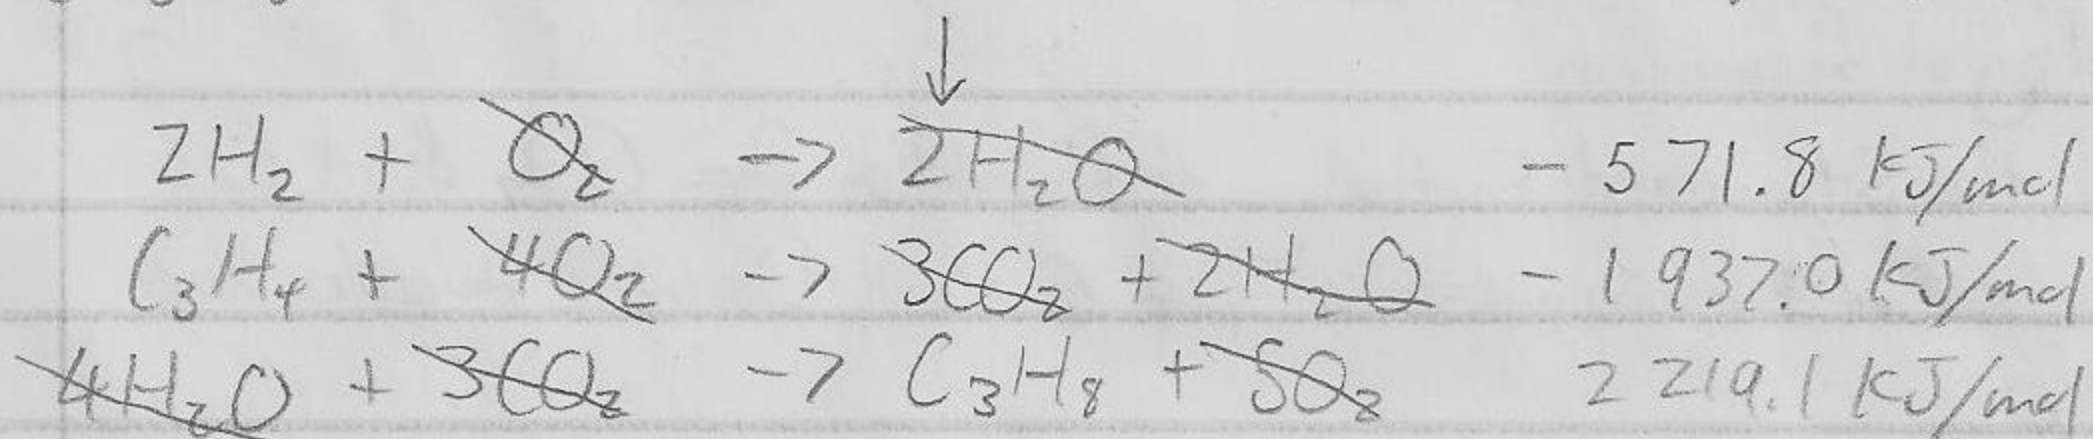 ↓
2H₂ + O₂ -> 2H₂O -571.8 KJ/mol
C₃H₄ + 4O₂ -> 3CO₂ + 2H₂O -1937.0 KJ/mol
4H₂O + 3CO₂ -> C₃H₈ + 5O₂ 2219.1 KJ/mol